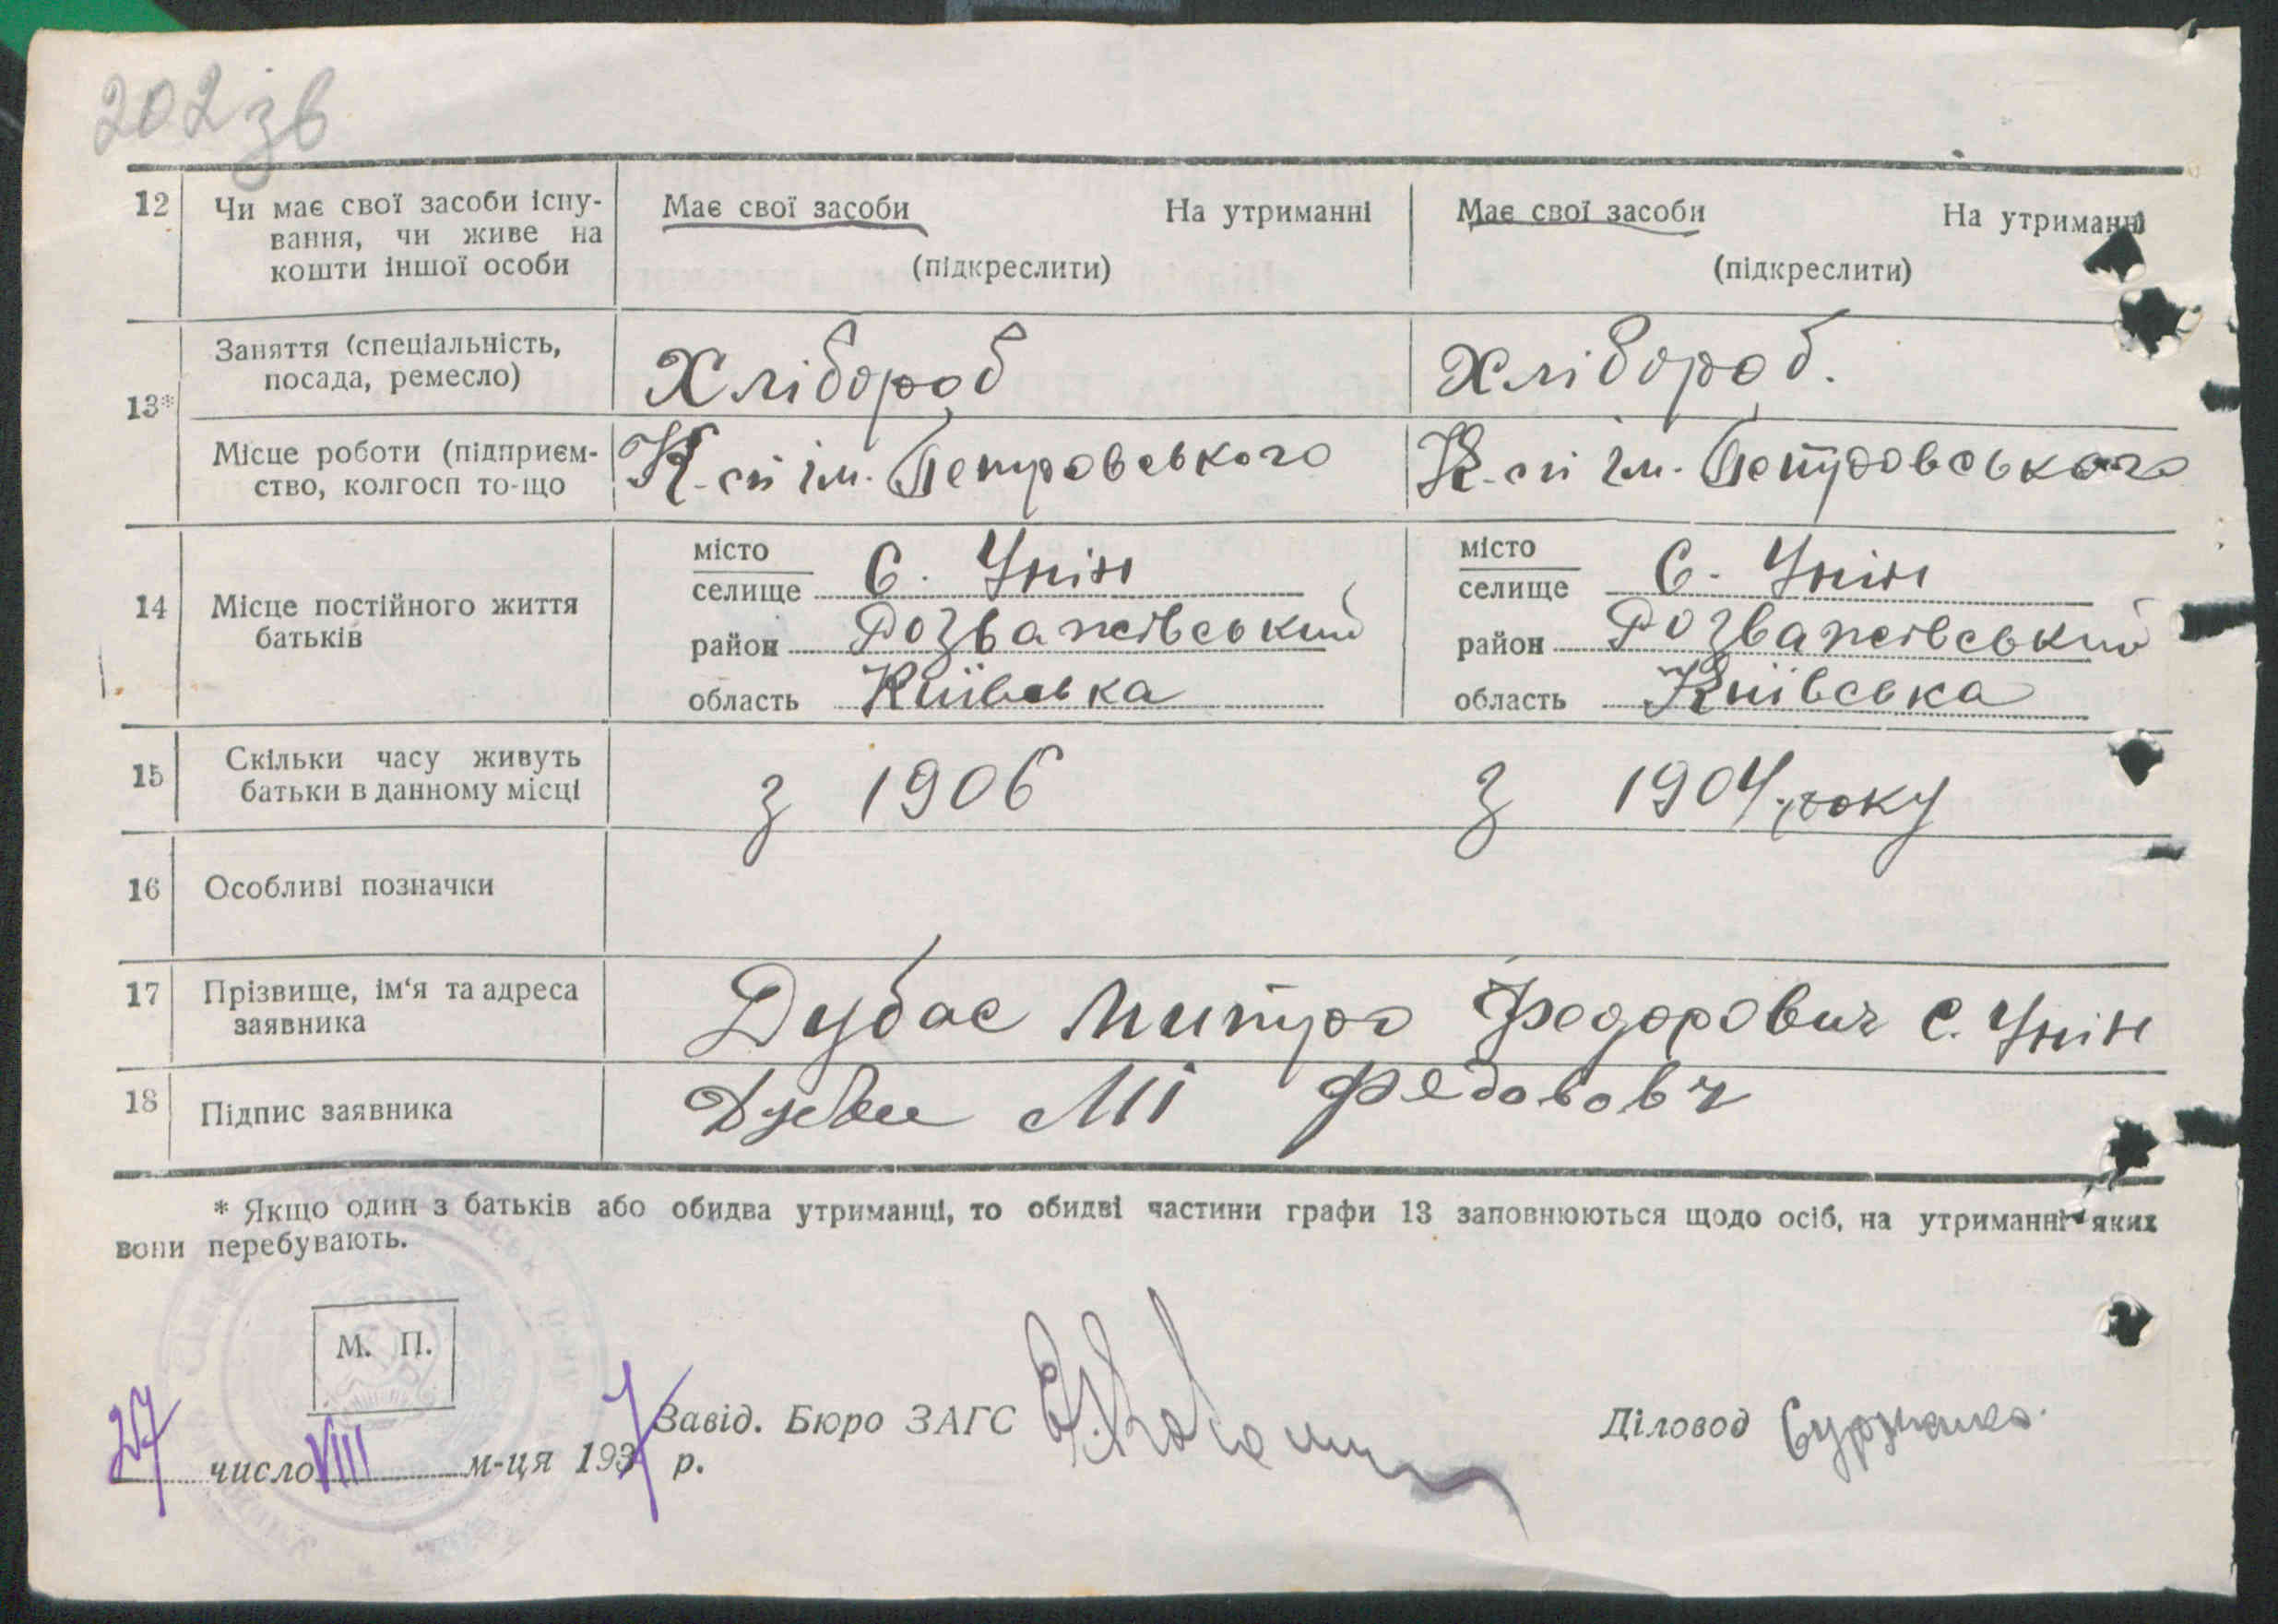 202 зв
12 Чи має свої засоби існу- Має свої засоби На утриманні Має свої засоби На утриманні
вання, чи живе на
кошти іншої особи (підкреслити) (підкреслити)
Заняття (спеціальність,
посада, ремесло) Хлібороб Хлібороб.
13*
Місце роботи (підприєм- К-сп ім. Петровського К-сп ім. Петровського
ство, колгосп то-що
місто місто
селище С. Унін селище С. Унін
14 Місце постійного життя
батьків район Розважівський район Розважівський
область Київська область Київська
15 Скільки часу живуть
батьки в данному місці з 1906 з 1904 року
16 Особливі позначки
17 Прізвище, ім'я та адреса
заявника Дубас Митро Федорович с. Унін
18 Підпис заявника
* Якщо один з батьків або обидва утриманці, то обидві частини графи 13 заповнюються щодо осіб, на утриманні яких
вони перебувають.
М. П.
Завід. Бюро ЗАГС Діловод
27 число VIII м-ця 1937 р.